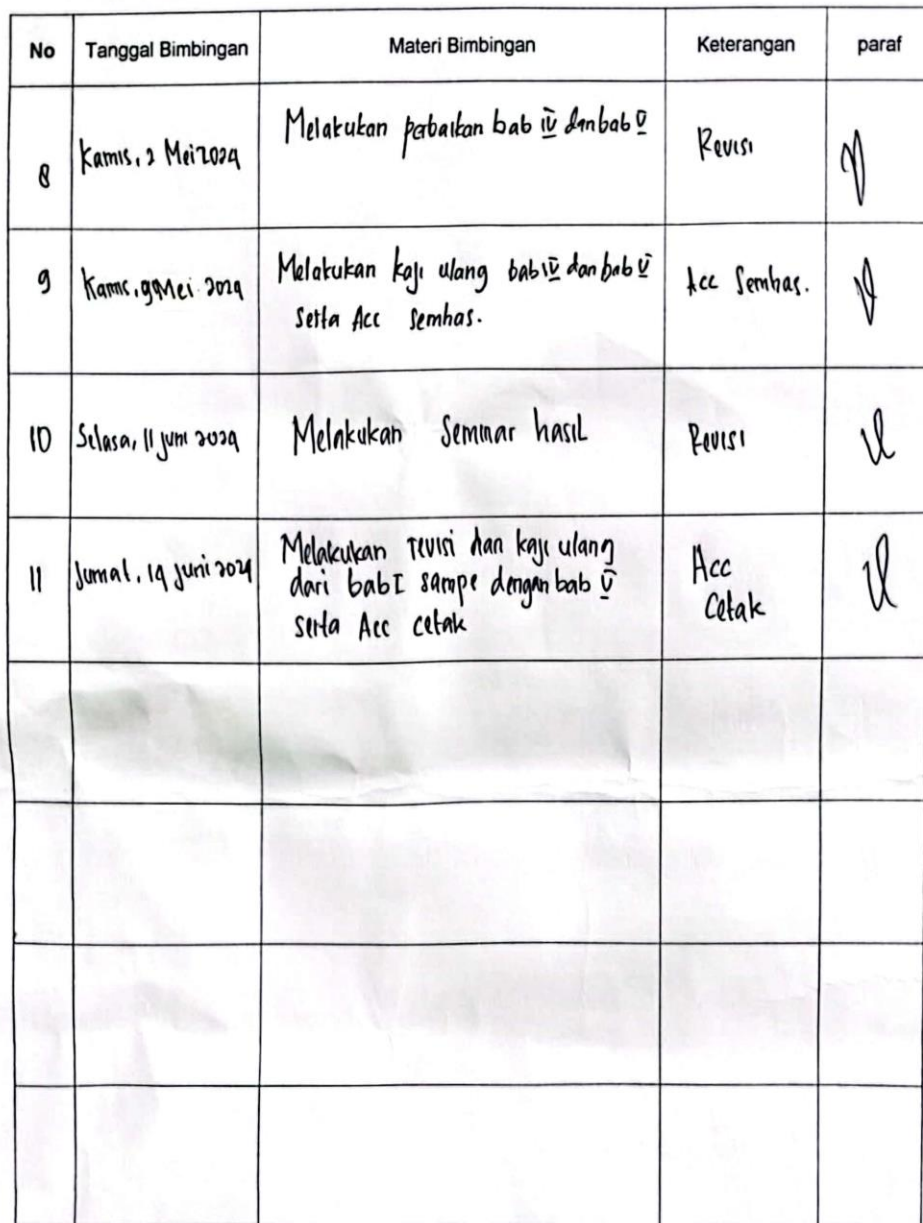 No Tanggal Bimbingan Materi Bimbingan Keterangan paraf
8 Kamis, 2 Mei 2024 Melakukan perbaikan bab IV dan bab V Revisi
9 Kamis, 9 Mei 2024 Melakukan kaji ulang bab IV dan bab V Acc Semhas.
serta Acc Semhas.
10 Selasa, 11 juni 2024 Melakukan Seminar hasil Revisi
11 Jumat, 14 juni 2024 Melakukan revisi dan kaji ulang Acc
dari bab I sampe dengan bab V Cetak
serta Acc cetak